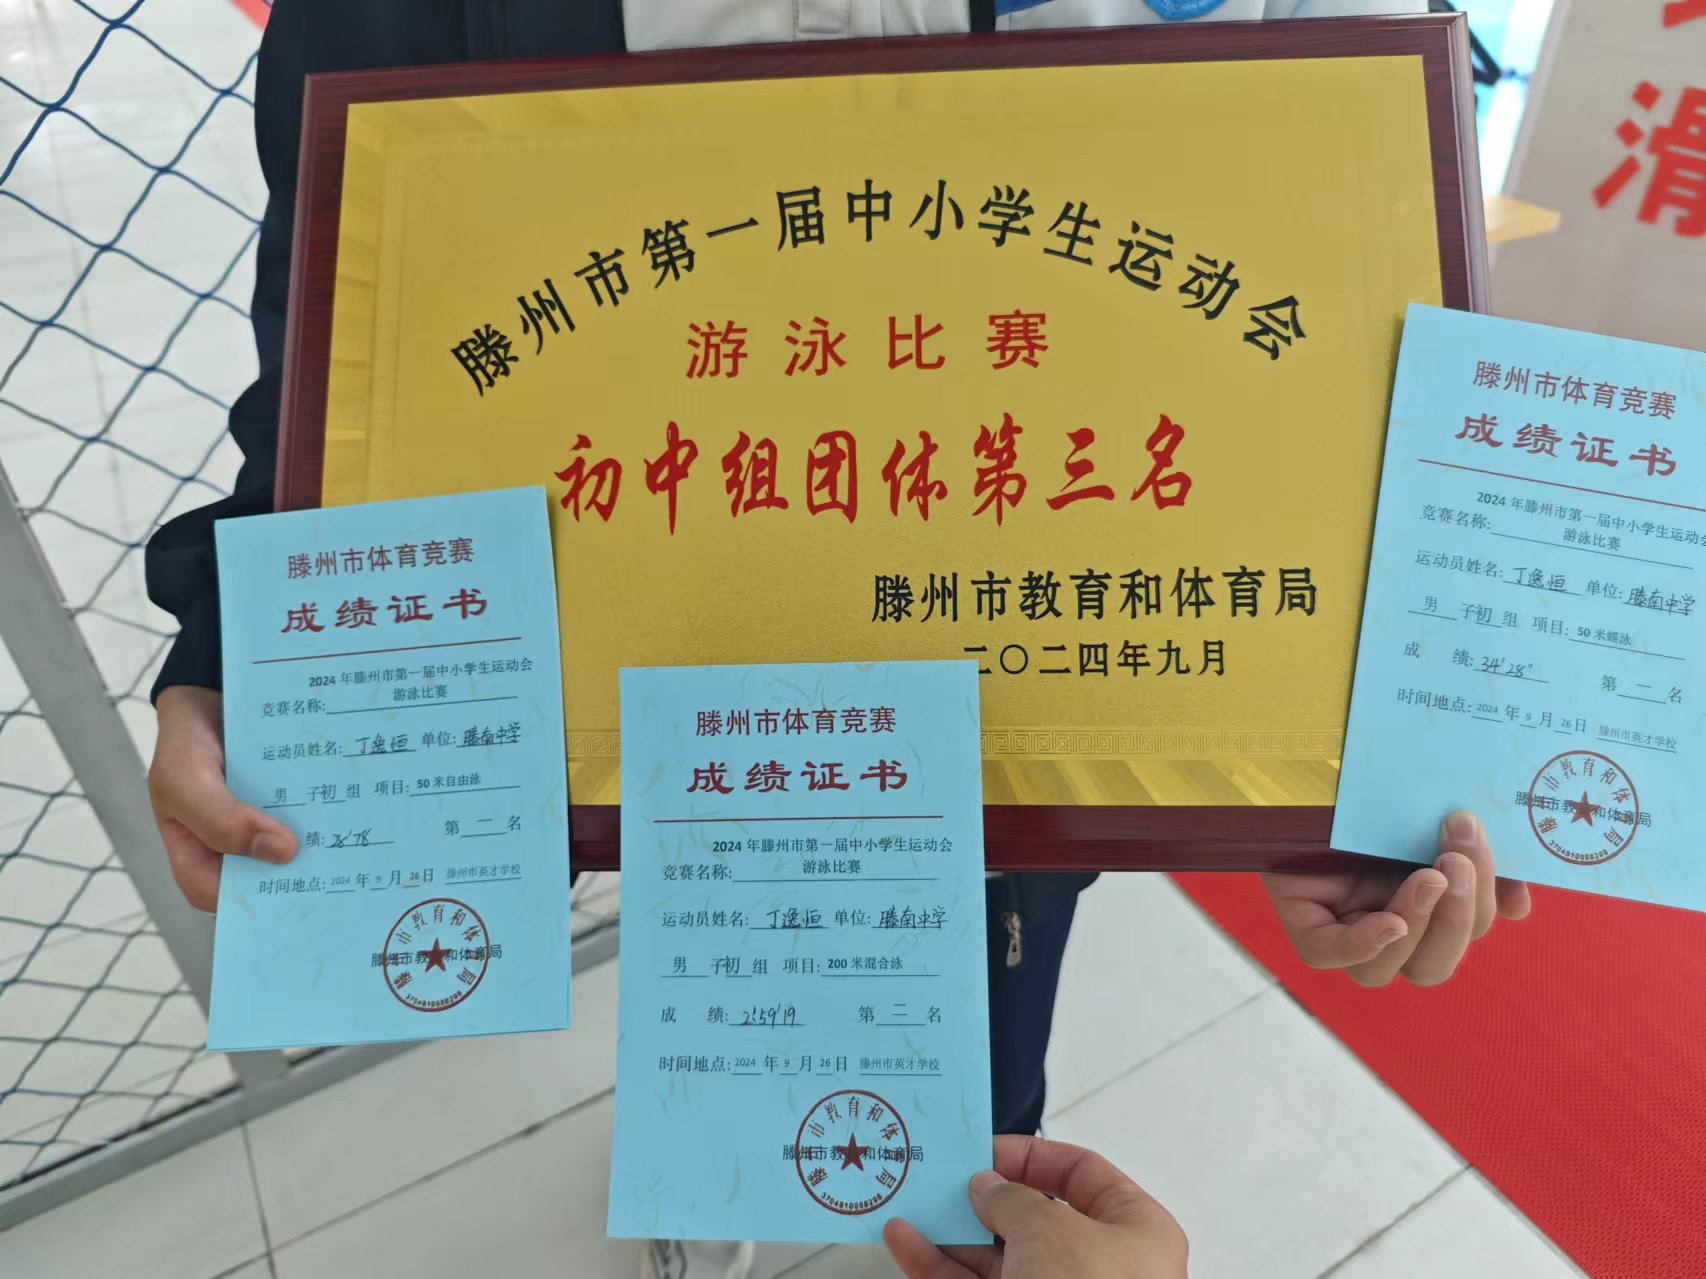 滑
滕州市第一届中小学生运动会
游泳比赛
初中组团体第三名
滕州市教育和体育局
二〇二四年九月
滕州市体育竞赛
成绩证书
2024年滕州市第一届中小学生运动会
竞赛名称:游泳比赛
运动员姓名:丁逸恒 单位:滕南中学
男子初组 项目:50米自由泳
绩:28'78 第二名
时间地点:2024年9月26日 滕州市英才学校
滕州市教育和体育局
3704810058298
滕州市体育竞赛
成绩证书
2024年滕州市第一届中小学生运动会
竞赛名称:游泳比赛
运动员姓名:丁逸恒 单位:滕南中学
男子初组 项目:200米混合泳
成绩:2'59'19 第二名
时间地点:2024年9月26日 滕州市英才学校
滕州市教育和体育局
3704810058298
滕州市体育竞赛
成绩证书
2024年滕州市第一届中小学生运动会
竞赛名称:游泳比赛
运动员姓名:丁逸恒 单位:滕南中学
男子初组 项目:50米蝶泳
成绩:34'28" 第一名
时间地点:2024年9月26日 滕州市英才学校
滕州市教育和体育局
3704810058298